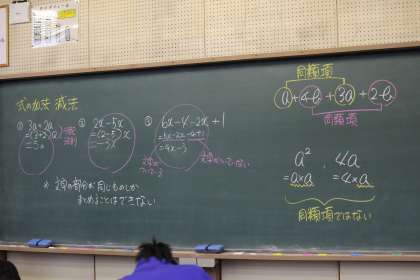 式の加法 減法
① 3a+2a
=(3+2)a
=5a
② 2x-5x
=(2-5)x
=-3x
③ 6x-4-2x+1
=6x-2x-4+1
=4x-3
※ 文字の部分が同じものしか
まとめることはできない
同類項
a+4b+3a+2b
同類項
a² , 4a
=a×a =4×a
同類項ではない